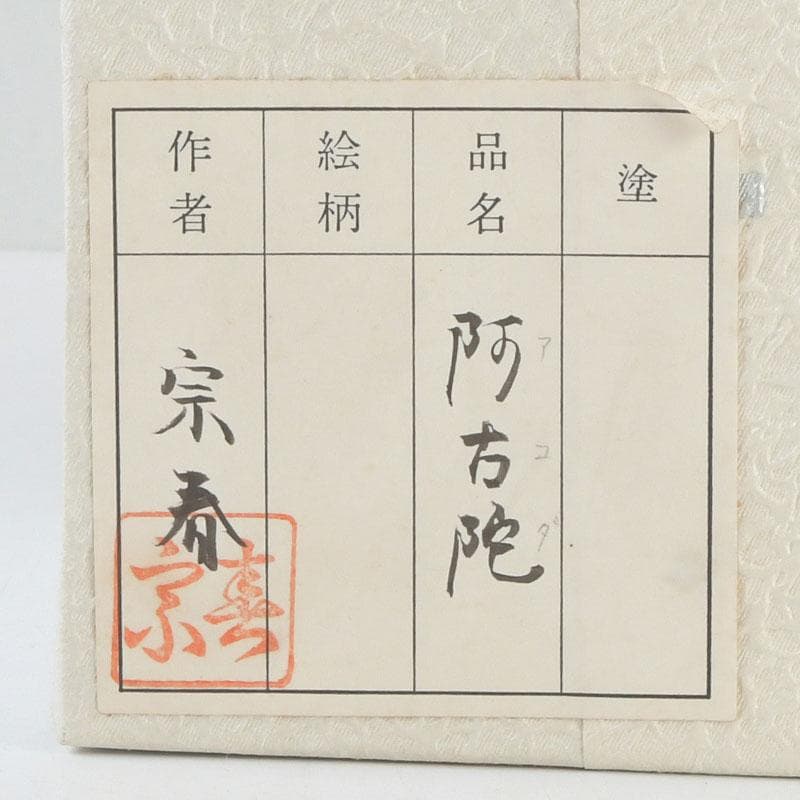 塗
品名
阿古陀
アコダ
絵柄
作者
宗春